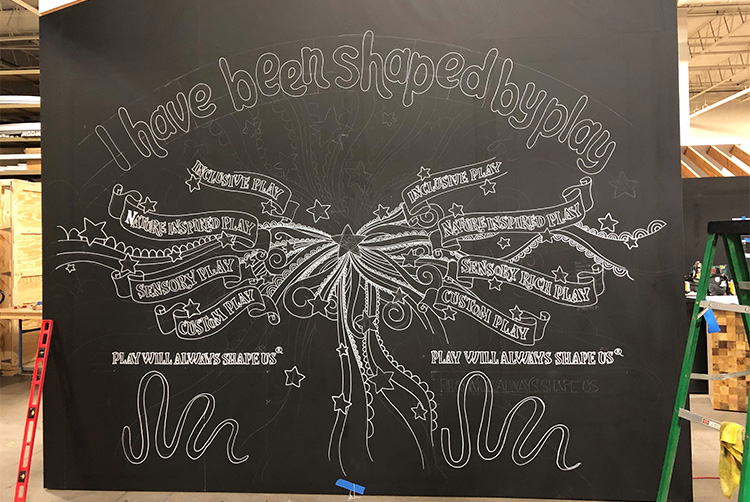 I have been shaped by play
INCLUSIVE PLAY
NATURE INSPIRED PLAY
SENSORY PLAY
CUSTOM PLAY
PLAY WILL ALWAYS SHAPE US®
INCLUSIVE PLAY
NATURE INSPIRED PLAY
SENSORY RICH PLAY
CUSTOM PLAY
PLAY WILL ALWAYS SHAPE US®
PLAY WILL ALWAYS SHAPE US